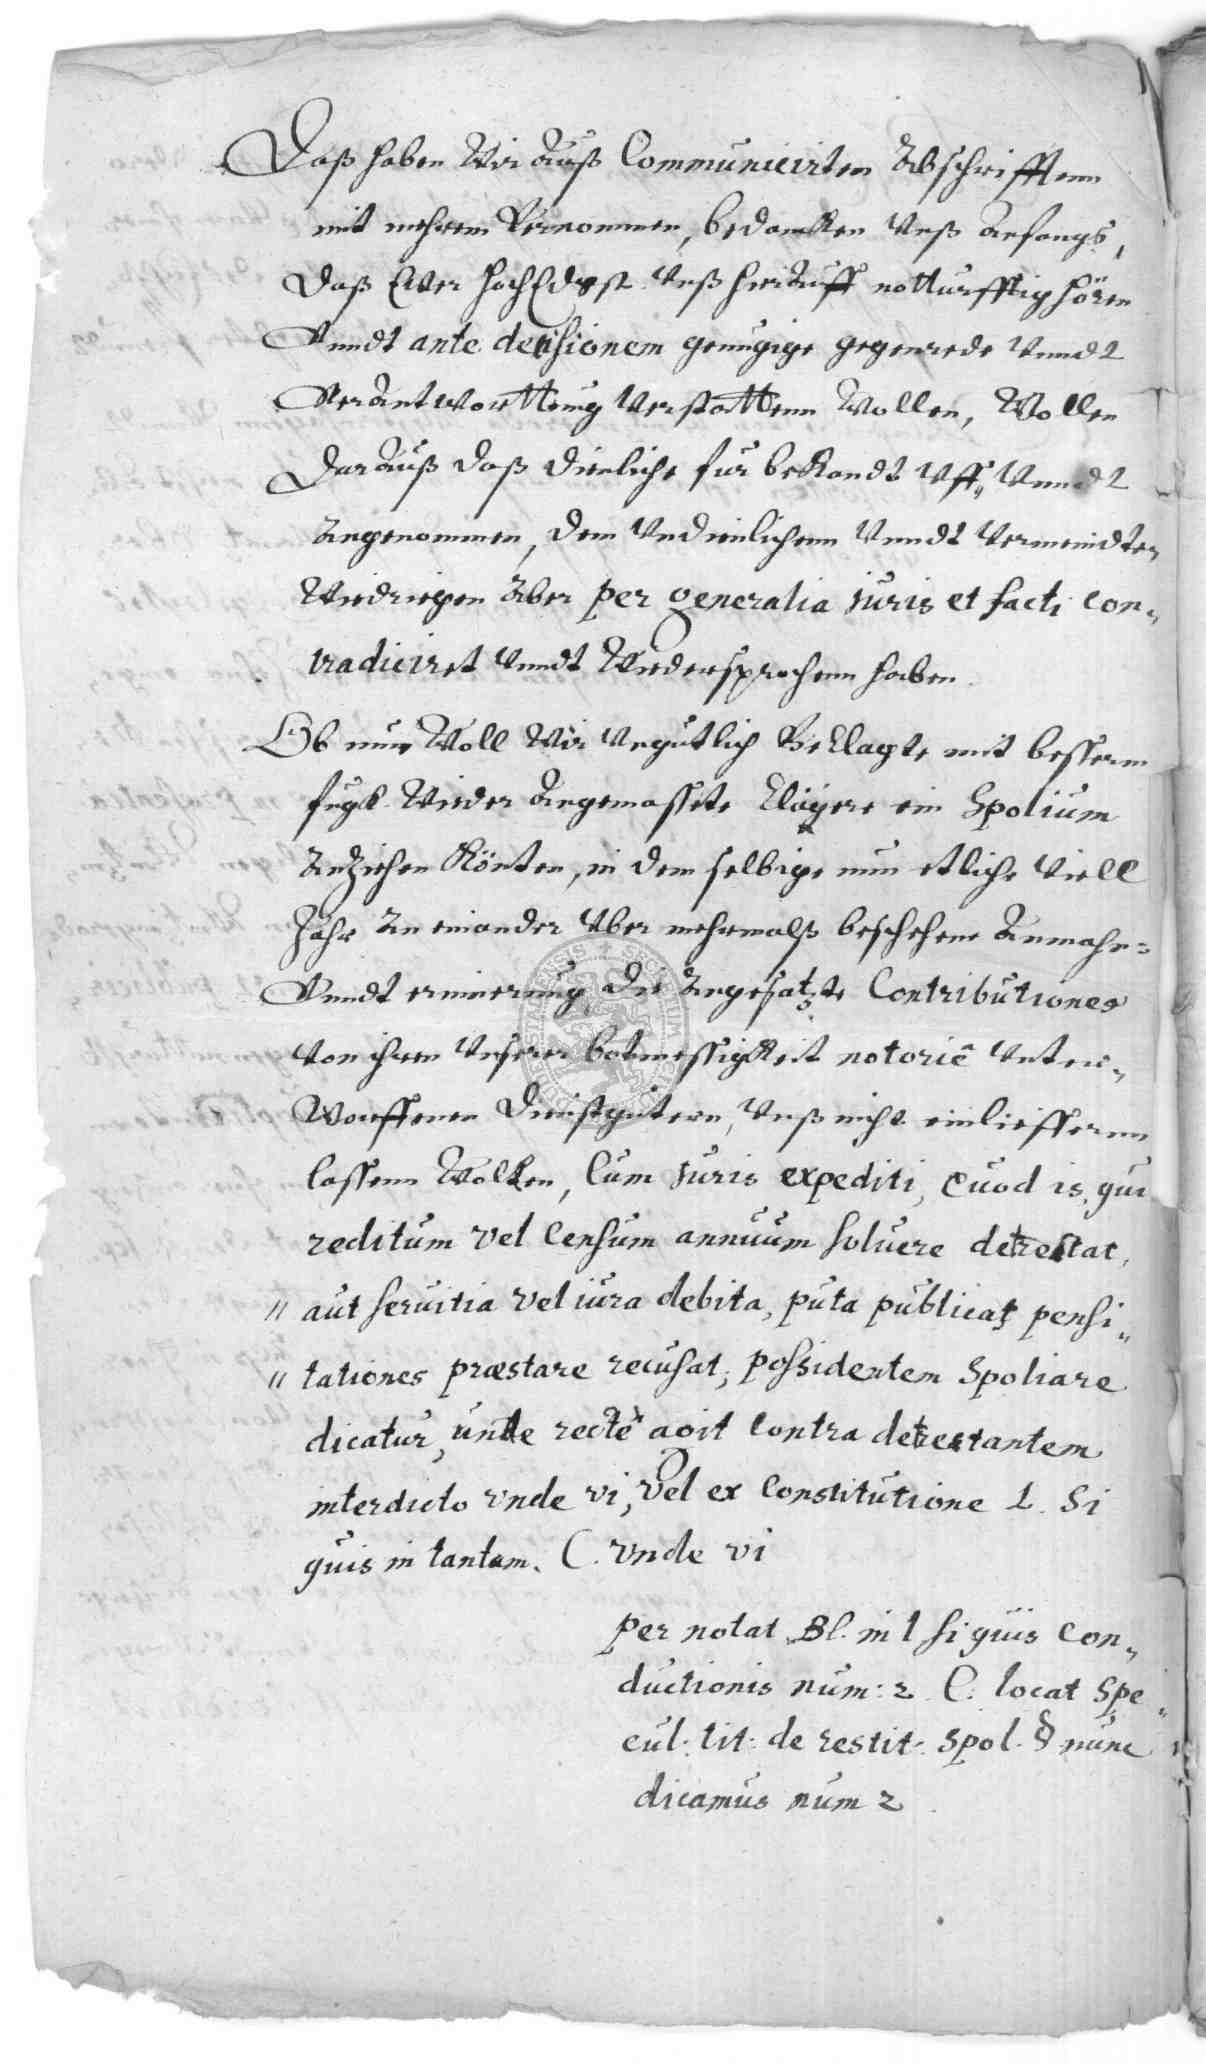 Daß haben Wir Auß Communicirten Abschrifftenn
mit mehrem Vernommen, bedancken Unß Anfangs,
Daß Ewer HochEdFst Unß hierAuff notturfftig hören
Vnndt ante decisionem genugige gegenrede Vnndt
VerAntworttung Verstattenn Wollen, Wollen
DarAuß daß dienliche fur bekandt Uff,, Vnndt
Angenommen, dem Undienlichenn Vnndt Vermeindten
Wiedriegen Aber per generalia juris et facti con„
tradiciret Vnndt Wiedersprochenn haben.
Ob nun Woll Wir Ungutlich Beklagte mit besserm
fugk Wieder Angemassete Klägere ein Spolium
Anziehen Könten, in dem selbige nun etliche Viell
Jahr An einander Uber mehrmalß beschehene Anmahn=
Vnndt erinnerung, Die Angesatzte Contributiones
Von ihren Unserer botmessigkeit notoriè Unter„
Worffenen Dienstgütern, Unß nicht einlieffernn
lassenn Wollen, Cum juris expediti, quod is, qui
reditum vel Censum annuum solvere detrectat,
" aut servitia vel iura debita, puta publicas pensi„
" tationes præstare recusat, possidentem Spoliare
dicatur, unde rectè agit contra detrectantem
interdicto vnde vi, vel ex Constitutione L. Si
quis in tantam. C. vnde vi
per notat Bl. in l si quis Con„
ductionis num: 2 C: locat Spe„
cul. tit: de restit: spol. § nunc
dicamus num 2